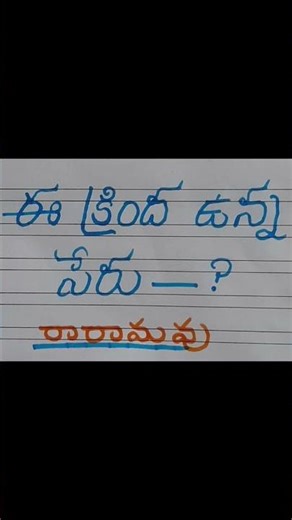 ఈ క్రింద ఉన్న
పేరు — ?
రారామవు